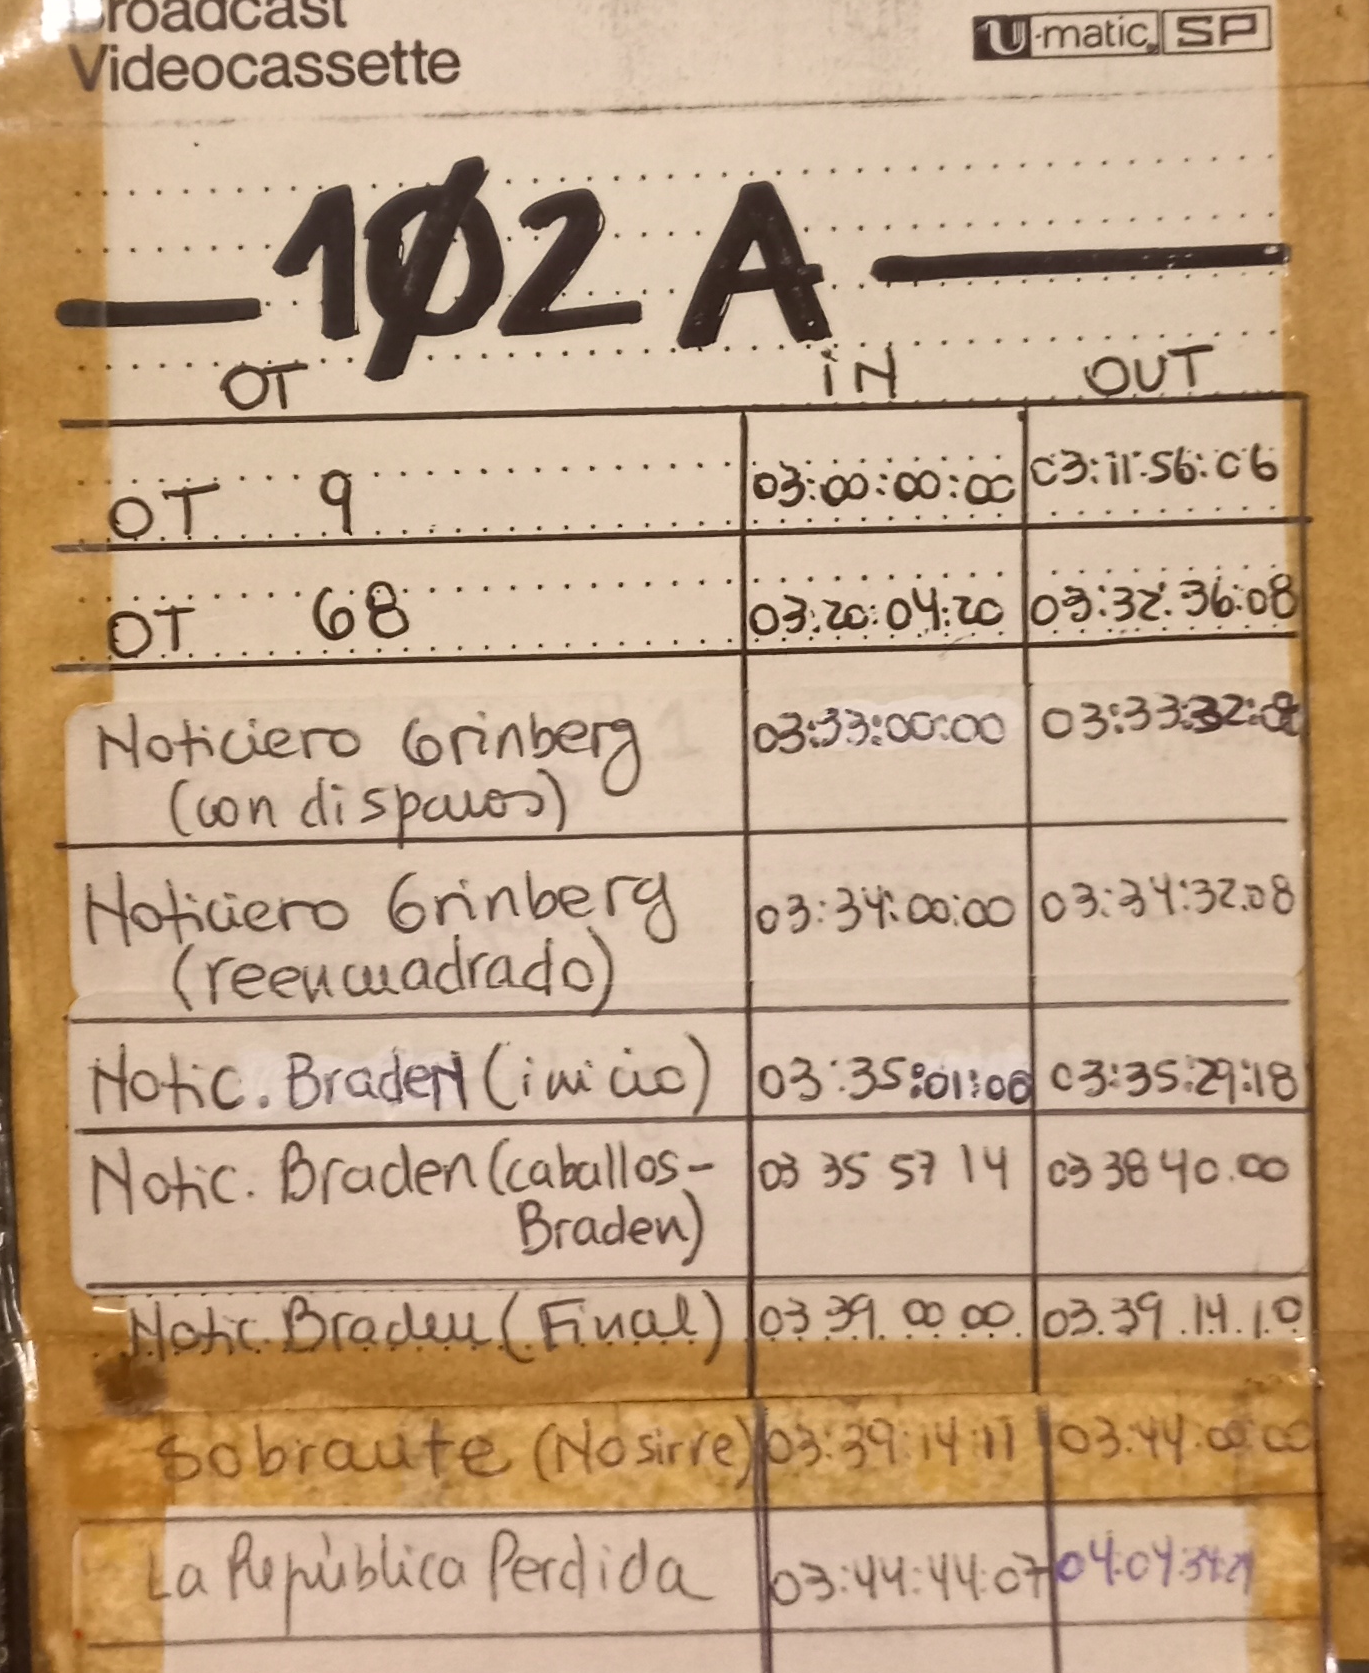 Broadcast
Videocassette
U-matic SP
1Ø2 A
OT IN OUT
OT 9 03:00:00:00 03:11:56:06
OT 68 03:20:04:20 03:32:36:08
Noticiero Grinberg 03:33:00:00 03:33:32:08
(con disparos)
Noticiero Grinberg 03:34:00:00 03:34:32:08
(reencuadrado)
Notic. Braden (inicio) 03:35:01:06 03:35:29:18
Notic. Braden (caballos- 03 35 57 14 03 38 40.00
Braden)
Notic. Braden (Final) 03 39 00 00 03.39.14.10
Sobrante (No sirve) 03:39:14:11 03:44:00:00
La República Perdida 03:44:44:07